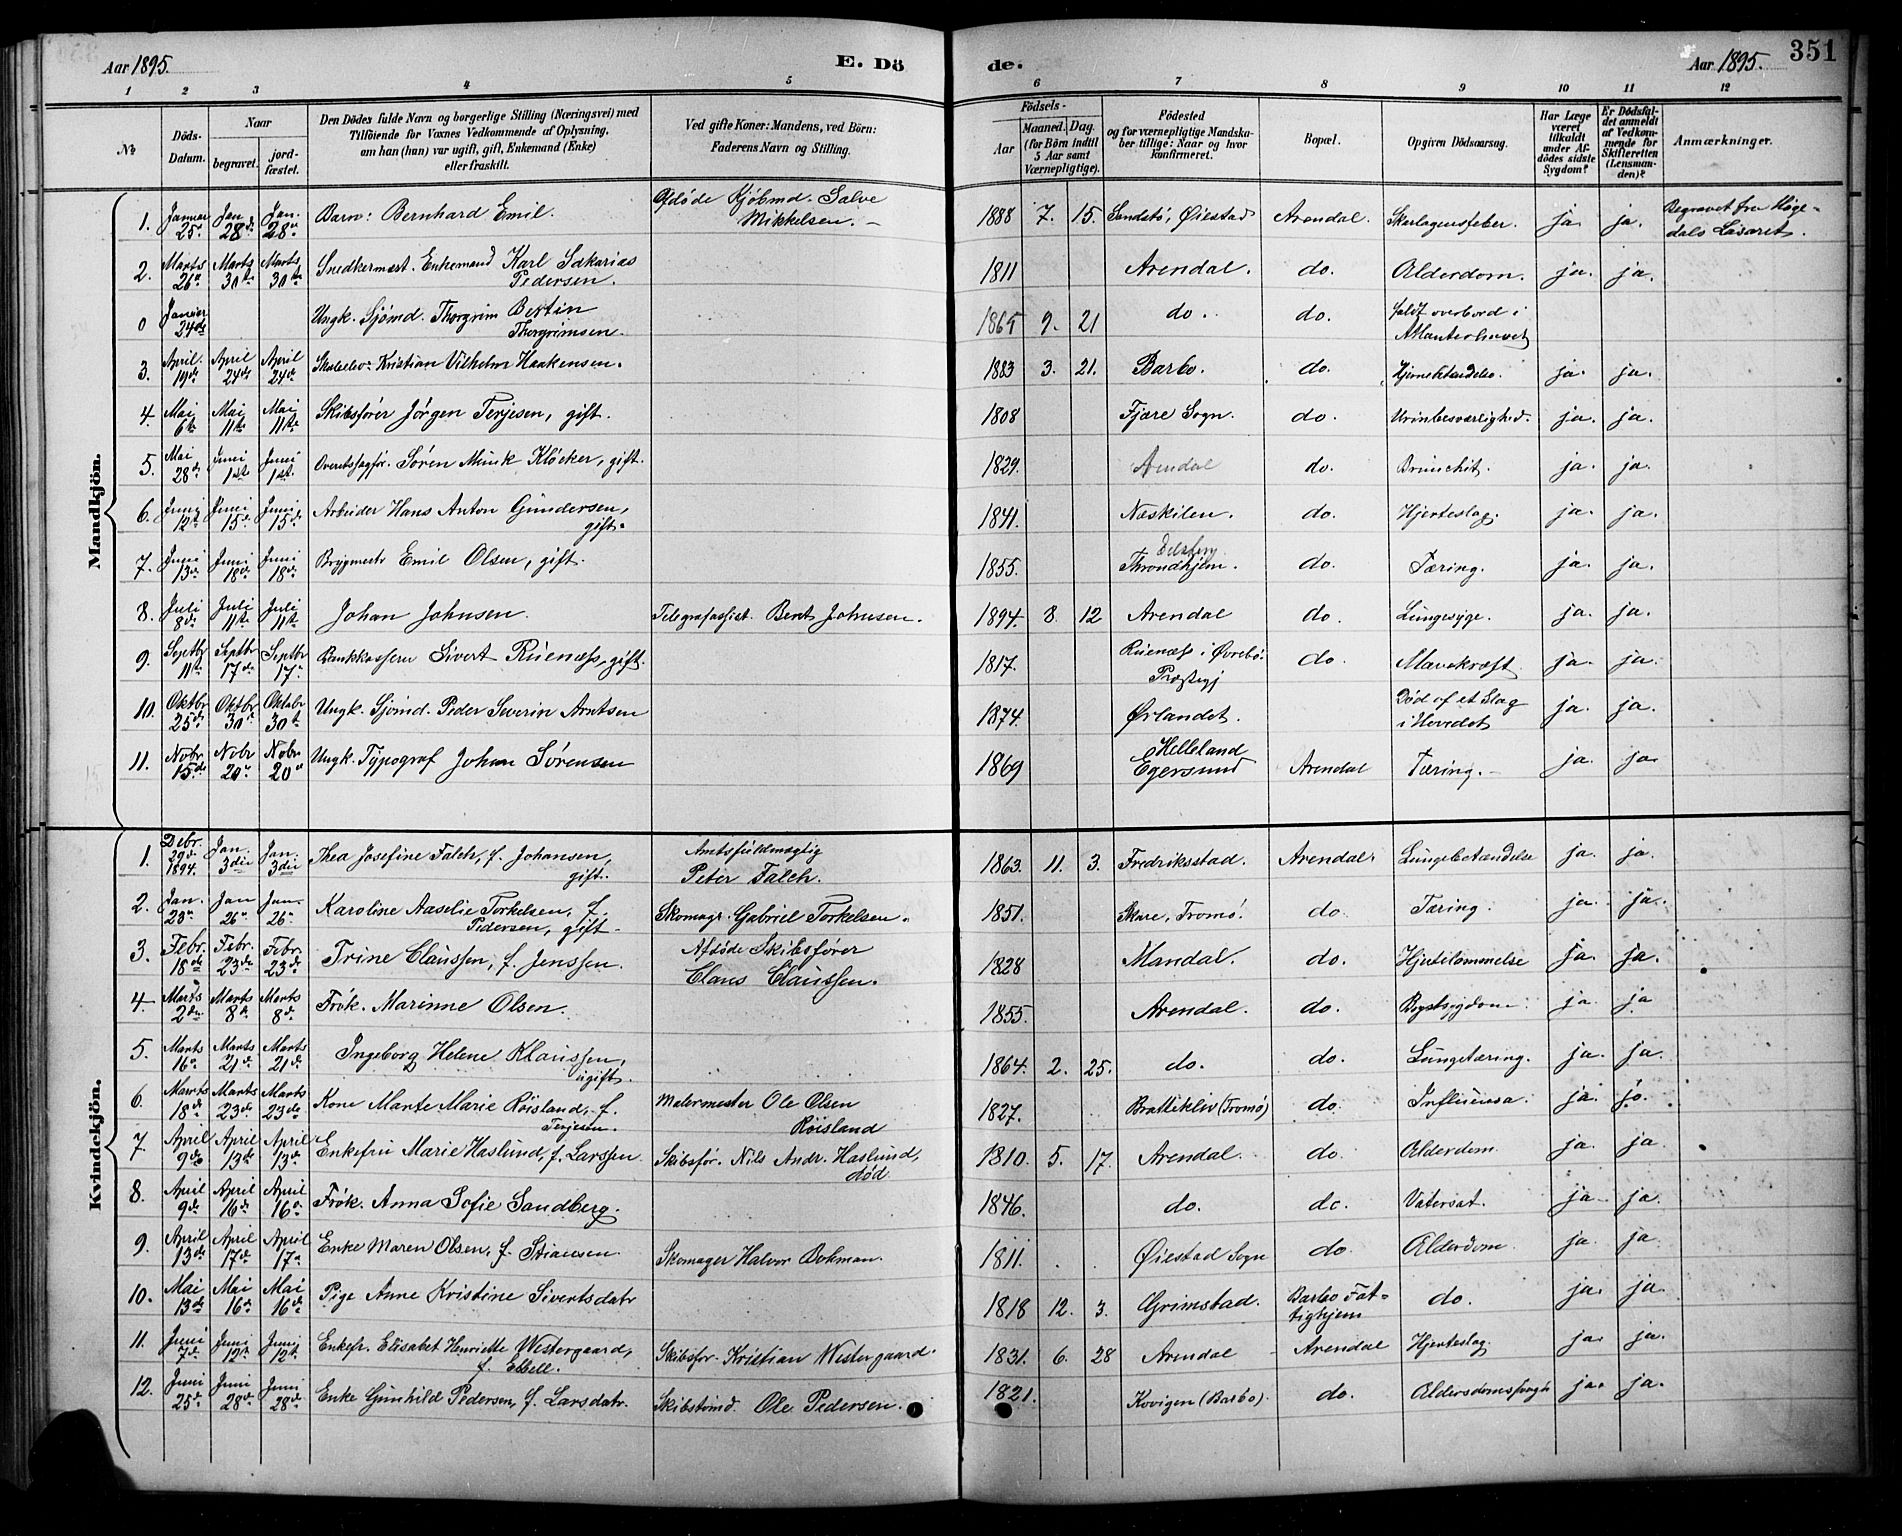 Aar 1895. E. Dö de. Aar 1895. 351
1 2 3 4 5 6 7 8 9 10 11 12
No. Döds-Datum. Naar begravet. jordfæstet. Den Dödes fulde Navn og borgerlige Stilling (Næringsvei) med Tilföiende for Voxnes Vedkommende af Oplysning, om han (hun) var ugift, gift, Enkemand (Enke) eller fraskilt. Ved gifte Koner: Mandens, ved Börn: Faderens Navn og Stilling. Födsels- Aar Maaned. Dag. (for Börn indtil 5 Aar samt Værnepligtige). Födested og for værnepligtige Mandskaber tillige: Naar og hvor konfirmeret. Bopæl. Opgiven Dödsaarsag. Har Læge været tilkaldt under Afdödes sidste Sygdom? Er Dödsfaldet anmeldt af Vedkommende for Skifteretten (Lensmanden)? Anmærkninger.
Mandkjön.
1. Januar 25 Jan 28de Jan. 28de Barn: Bernhard Emil. Afdøde Kjøbmd. Salve Mikkelsen. – 1888 7. 15. Sandstö, Øiestad Arendal. Skarlagensfeber. ja ja. Begravet fra Høgedals Lasaret.
2. Marts 26 Marts 30te Marts 30te Snedkermest. Enkemand Karl Sakarias Pedersen. 1811 Arendal. do. Alderdom. ja. ja.
0 Januar 24de Ungk. Sjömd. Thorgrim Bertin Thorgrimsen. 1865 9. 21 do. do. faldt overbord i Atlanterhavet
3. April. 19de April 24de April 24de Skoleelev. Kristian Vilhelm Haakensen. 1883 3. 21. Barbo. do. Hjernebetændelse. ja. ja.
4. Mai 6te Mai 11te Mai 11te Skibsfører Jørgen Terjesen, gift. 1808 Fjære Sogn. do. Urinbesværlighed. ja. ja.
5. Mai 28de Juni 1st Juni 1st. Overetssagfør. Søren Munk Kløcker, gift. 1829. Arendal do. Bronchit. ja. ja.
6. Juni 12te Juni 15de Juni 15de Arbeider Hans Anton Gundersen, gift. 1841. Næskilen. do. Hjerteslag. ja. ja.
7. Juni 13de Juni 18de Juni 18de Brygmestr Emil Olsen, gift. 1855. Throndhjem. do. Tæring. ja. ja.
8. Juli 8de Juli 11te Juli 11te Johan Johnsen. Telegrafassist. Bent Johnsen. 1894. 8. 12 Arendal do. Lungesyge. ja. ja.
9. Septbr 11te Septbr 17de Septbr 17de Bankkasserer Sivert Rüenæss, gift. 1817. Rüenæss i Øvrebö. Præstegj do. Mavekræft. ja. ja.
10. Oktbr 25de Oktbr 30te Oktobr 30te Ungk. Sjömd. Peder Severin Arntsen 1874. Ørlandet. Død af et Slag i Hovedet ja. ja.
11. Nobr 15de Nobr 20de Nobr 20de Ungk. Typograf Johan Sörensen 1869 Helleland Egersund Arendal Tæring. – ja. ja.
Kvindekjön.
1. Debr. 29de 1894. Jan. 3die Jan. 3die Thea Josefine Falch, f. Johansen, gift. Amtsfuldmægtig Peter Falch. 1863. 11. 3. Fredriksstad. Arendal. Lungebetændelse ja. ja.
2. Jan. 23de Jan 26de Jan. 26de Karoline Aaselie Torkelsen, f. Pedersen, gift. Skomagr. Gabriel Torkelsen. 1851. Skare, Tromö. do. Tæring. ja. ja.
3. Febr. 18de Febr. 23de Febr. 23de Trine Claussen, f. Jenssen. Afdöde Skibsfører Claus Claussen. 1828 Mandal. do. Hjertelammelse ja. ja.
4. Marts 2den Marts 8de Marts 8de Frök. Marinne Olsen. 1855. Arendal. do. Brystsygdom. ja. ja
5. Marts 16de Marts 21de Marts 21de Ingeborg Helene Klaussen, ugift. 1864. 2. 25. do. do. Lungetæring. ja. ja.
6. Marts 18de Marts 23de Marts 23de Kone Marte Marie Röisland, f. Terjesen. Malermester Ole Olsen Röisland 1827. Brattekliv (Tromö) do. Influensa. ja. ja.
7. April 9de April 13de April 13de Enkefru Marie Haslund, f. Larssen. Skibsför. Nils Andr. Haslund, död 1810. 5. 17. Arendal. do. Alderdom. ja. ja.
8. April 9de April 16de April 16de Frök. Anna Sofie Sandberg. 1846. do. do. Vatersot. ja. ja.
9. April 13de April 17de April 17de Enke Maren Olsen, f. Stiansen. Skomager Halvor Bokman. 1811. Øiestad Sogn do. Alderdom. ja. ja.
10. Mai 13de Mai 16de Mai 16de Pige Anne Kristine Sivertsdatr 1818 12. 3. Grimstad. Barbo Fattighjem do. ja. ja.
11. Juni 7de Juni 12te Juni 12te Enkefr. Elisabet Henriette Westergaard, f. Ebbell. Skibsför. Kristian Westergaard. 1831. 6. 28 Arendal Arendal Hjerteslag. ja. ja.
12. Juni 25de Juni 28de Juni 28de Enke Gunhild Pedersen, f. Larsdatr. Skibstömd. Ole Pedersen. 1821. Kovigen (Barbo). do. ja. ja.